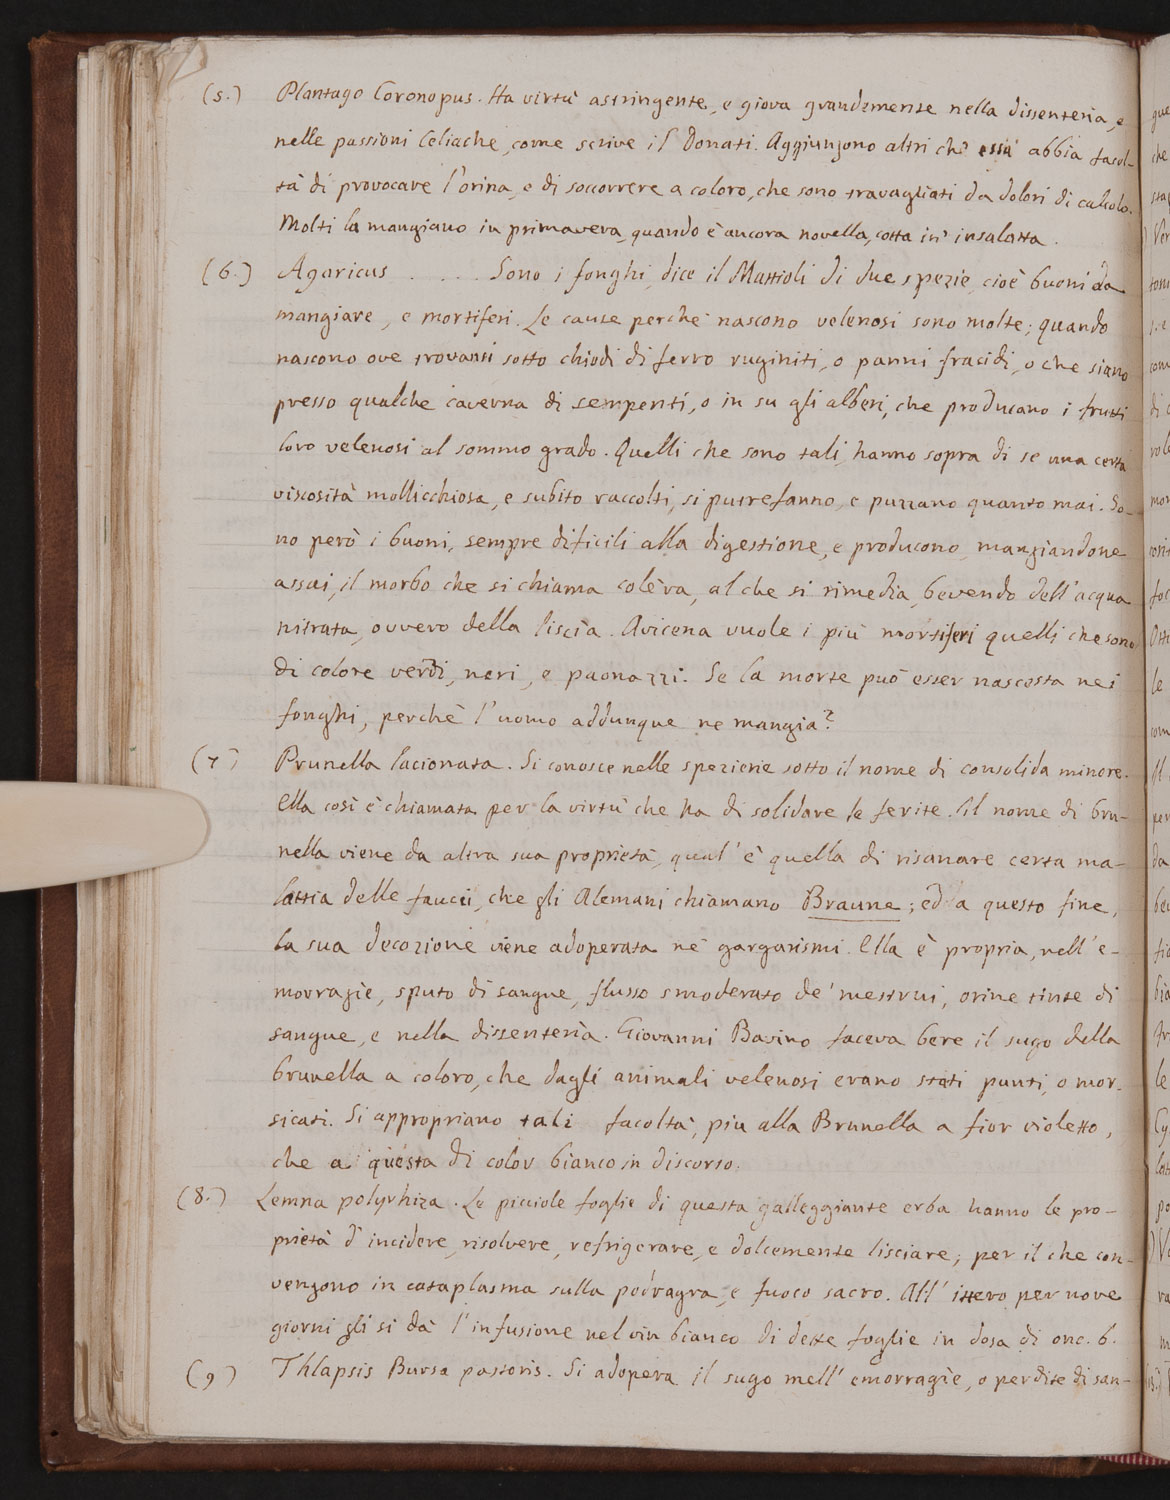 (5.) Plantago Coronopus. Ha virtù astringente, e giova grandemente nella dissenteria, e
nelle passioni Celiache, come scrive il Donati. Aggiungono altri che essa abbia facol-
tà di provocare l'orina, e di soccorrere a coloro, che sono travagliati da dolori di calcolo.
Molti la mangiano in primavera, quando è ancora novella, cotta in insalatta.
(6.) Agaricus . . . . Sono i fonghi, dice il Mattioli di due spezie, cioè buoni da
mangiare, e mortiferi. Le cause perchè nascono velenosi sono molte; quando
nascono ove trovansi sotto chiodi di ferro ruginiti, o panni fracidi, o che siano
presso qualche caverna di serpenti, o in su gli alberi, che producano i frutti
loro velenosi al sommo grado. Quelli che sono tali, hanno sopra di se una certa
viscosità mollicchiosa, e subito raccolti, si putrefanno, e puzzano quanto mai. So-
no però i buoni, sempre dificili alla digestione, e producono, mangiandone
assai, il morbo che si chiama colèra, al che si rimedia, bevendo dell'acqua
nitrata, ovvero della liscia. Avicena vuole i più mortiferi quelli che sono
di colore verdi, neri, e paonazzi. Se la morte può esser nascosta nei
fonghi, perchè l'uomo addunque ne mangia?
(7) Prunella lacionata. Si conosce nelle spezierie sotto il nome di consolida minore.
Ella così è chiamata per la virtù che ha di solidare le ferite. Il nome di bru-
nella viene da altra sua proprietà, qual' è quella di risanare certa ma-
lattia delle fauci, che gli Alemani chiamano Braune; ed a questo fine,
la sua decozione viene adoperata ne' gargarismi. Ella è propria, nell'e-
morragie, sputo di sangue, flusso smoderato de' mestrui, orine tinte di
sangue, e nella dissenteria. Giovanni Bavino faceva bere il sugo della
brunella a coloro, che dagli animali velenosi erano stati punti, o mor-
sicati. Si appropriano tali facoltà, più alla Brunella a fior violetto,
che a questa di color bianco in discorso.
(8.) Lemna polyrhiza. Le picciole foglie di questa galleggiante erba hanno le pro-
prietà d'incidere, risolvere, refrigerare, e dolcemente lisciare; per il che con-
vengono in cataplasma sulla podragra, e fuoco sacro. All' ittero per nove
giorni gli si dà l'infusione nel vin bianco di dette foglie in dosa di onc. 6.
(9) Thlapsis Bursa pastoris. Si adopera il sugo nell' emorragie, o perdite di san-